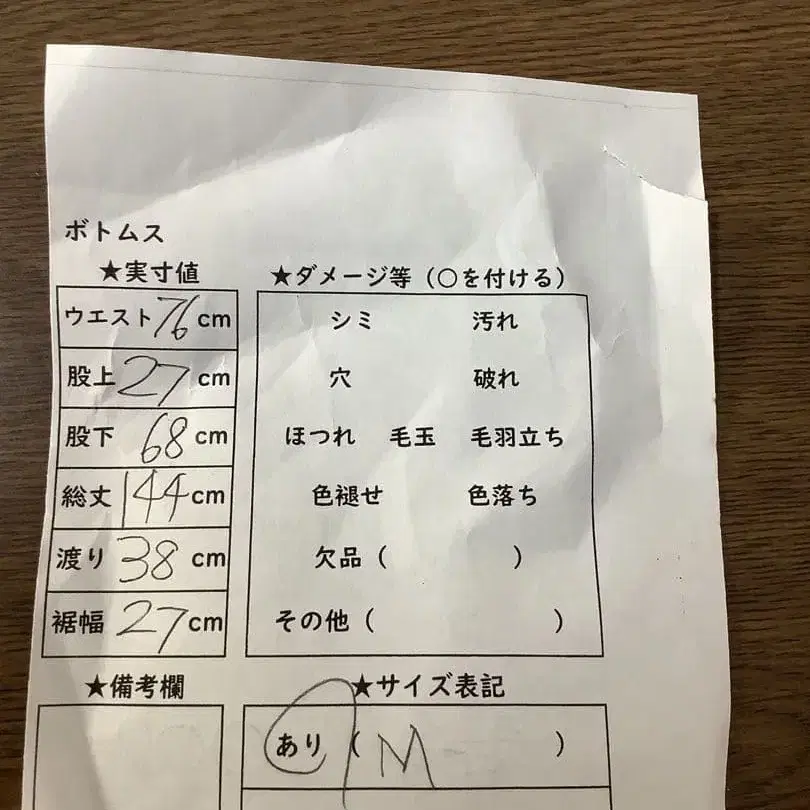 ボトムス
★実寸値
ウエスト76cm
股上27cm
股下68cm
総丈144cm
渡り38cm
裾幅27cm
★ダメージ等（○を付ける）
シミ 汚れ
穴 破れ
ほつれ 毛玉 毛羽立ち
色褪せ 色落ち
欠品（ ）
その他（ ）
★備考欄
★サイズ表記
あり（M）